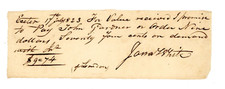 Exeter 17th 1823 For Value received I promise
to Pay John Gardner or Order Nine
dollars, Seventy four cents on demand
with
$9.74
Jana White